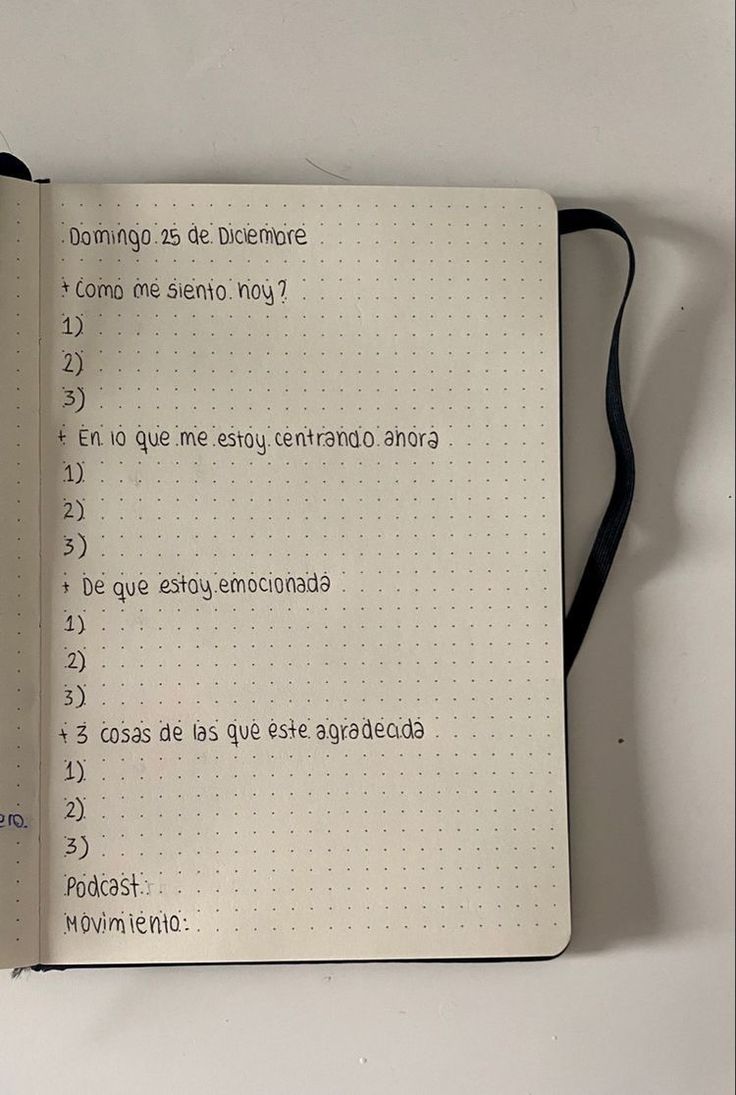 Domingo 25 de Diciembre
+ Como me siento hoy?
1)
2)
3)
+ En lo que me estoy centrando ahora
1)
2)
3)
+ De que estoy emocionada
1)
2)
3)
+ 3 cosas de las que este agradecida
1)
2)
3)
Podcast:
Movimiento: